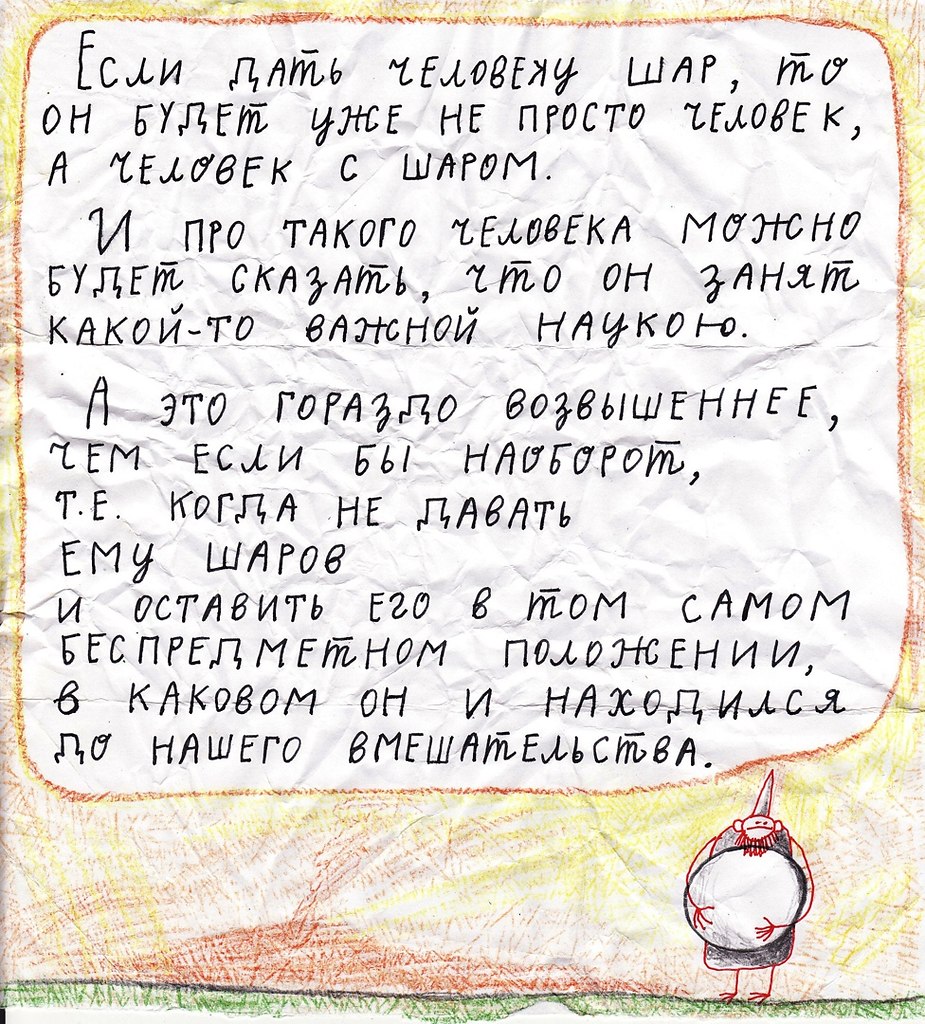 Если дать человеку шар, то
он будет уже не просто человек,
а человек с шаром.
И про такого человека можно
будет сказать, что он занят
какой-то важной наукою.
А это гораздо возвышеннее,
чем если бы наоборот,
т.е. когда не давать
ему шаров
и оставить его в том самом
беспредметном положении,
в каковом он и находился
до нашего вмешательства.